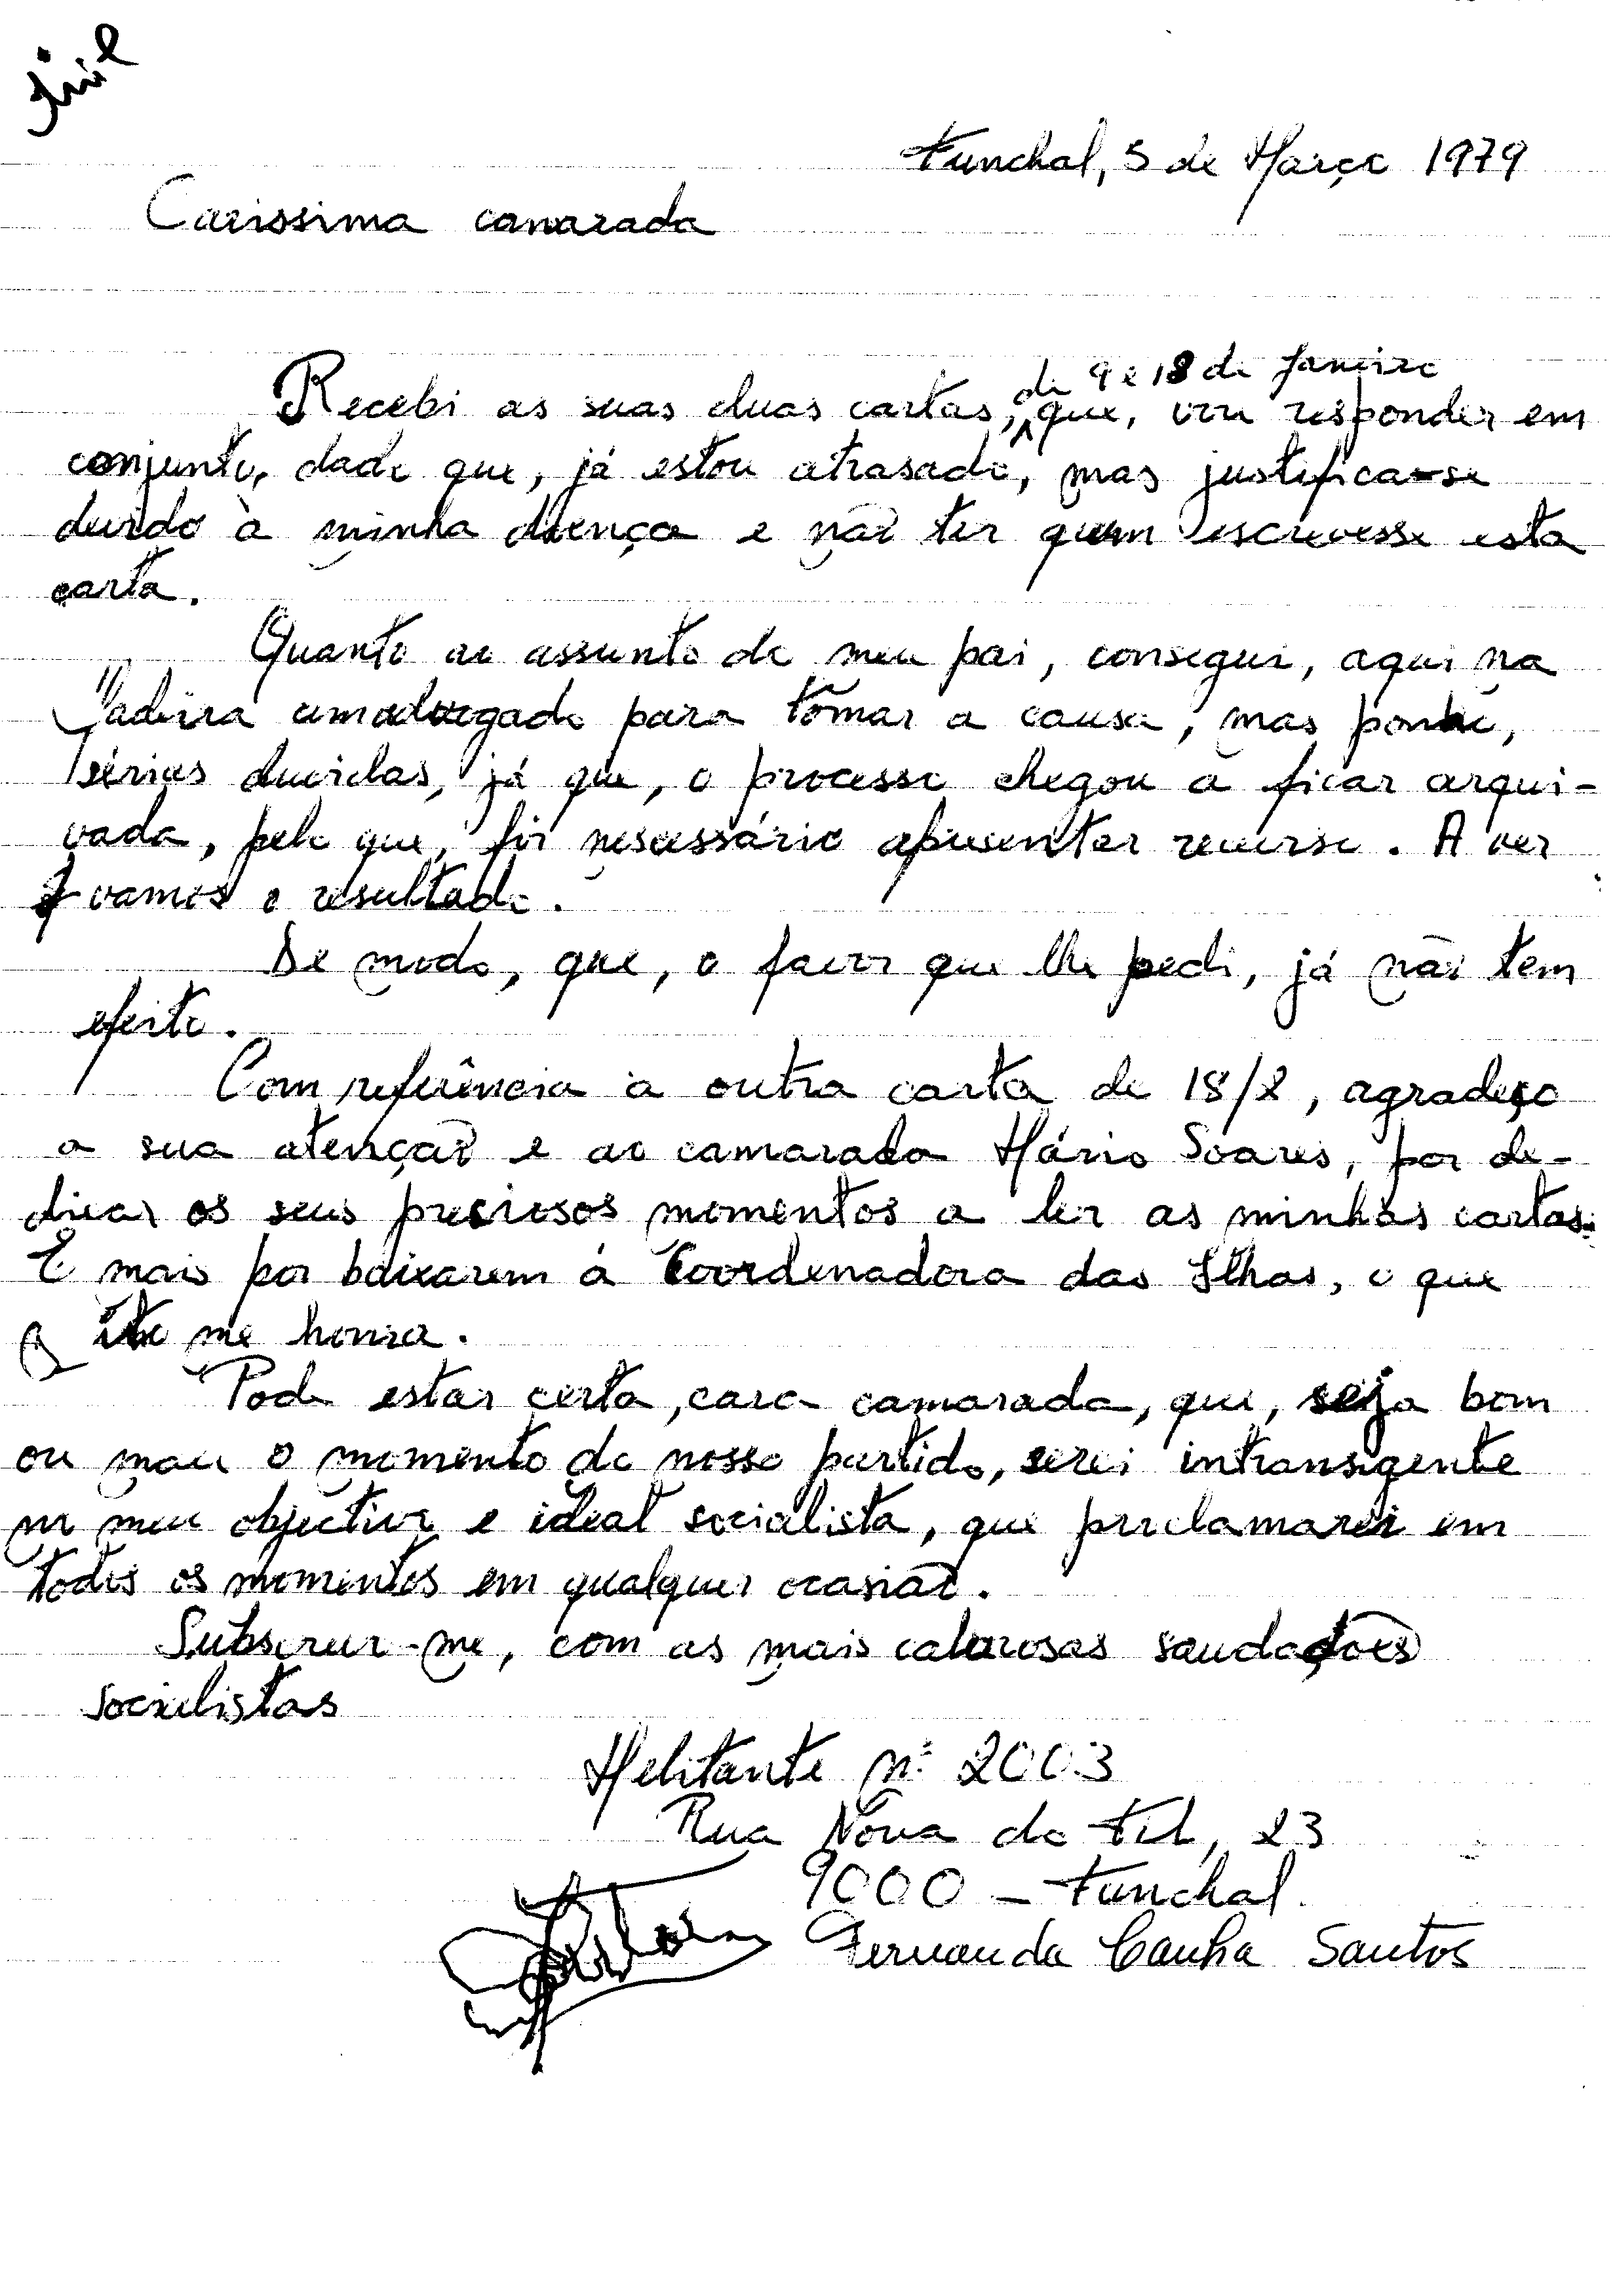 Funchal, 5 de Março 1979
Carissima camarada
de 9 e 18 de Janeiro
Recebi as suas duas cartas, que, vou responder em
conjunto, dado que, já estou atrasado, mas justifica-se
devido à minha doença e não ter quem escrevesse esta
carta.
Quanto ao assunto do meu pai, consegui, aqui na
Madeira um advogado para tomar a causa, mas ponho,
sérias duvidas, já que, o processo chegou a ficar arqui-
vado, pelo que, foi nescessário apresentar recurso. A ver
vamos o resultado.
De modo, que, o favor que lhe pedi, já não tem
efeito.
Com referência à outra carta de 18/2, agradeço
a sua atenção e ao camarada Mário Soares, por de-
dicar os seus preciosos momentos a ler as minhas cartas.
E mais por baixarem á Coordenadora das Ilhas, o que
me honra.
Pode estar certa, cara camarada, que, seja bom
ou mau o momento do nosso partido, serei intransigente
no meu objectivo e ideal socialista, que proclamarei em
todos os momentos em qualquer ocasião.
Subscrevo-me, com as mais calorosas saudações
socialistas
Melitante nº 2003
Rua Nova do Til, 23
9000 - Funchal.
Fernanda Canha Santos